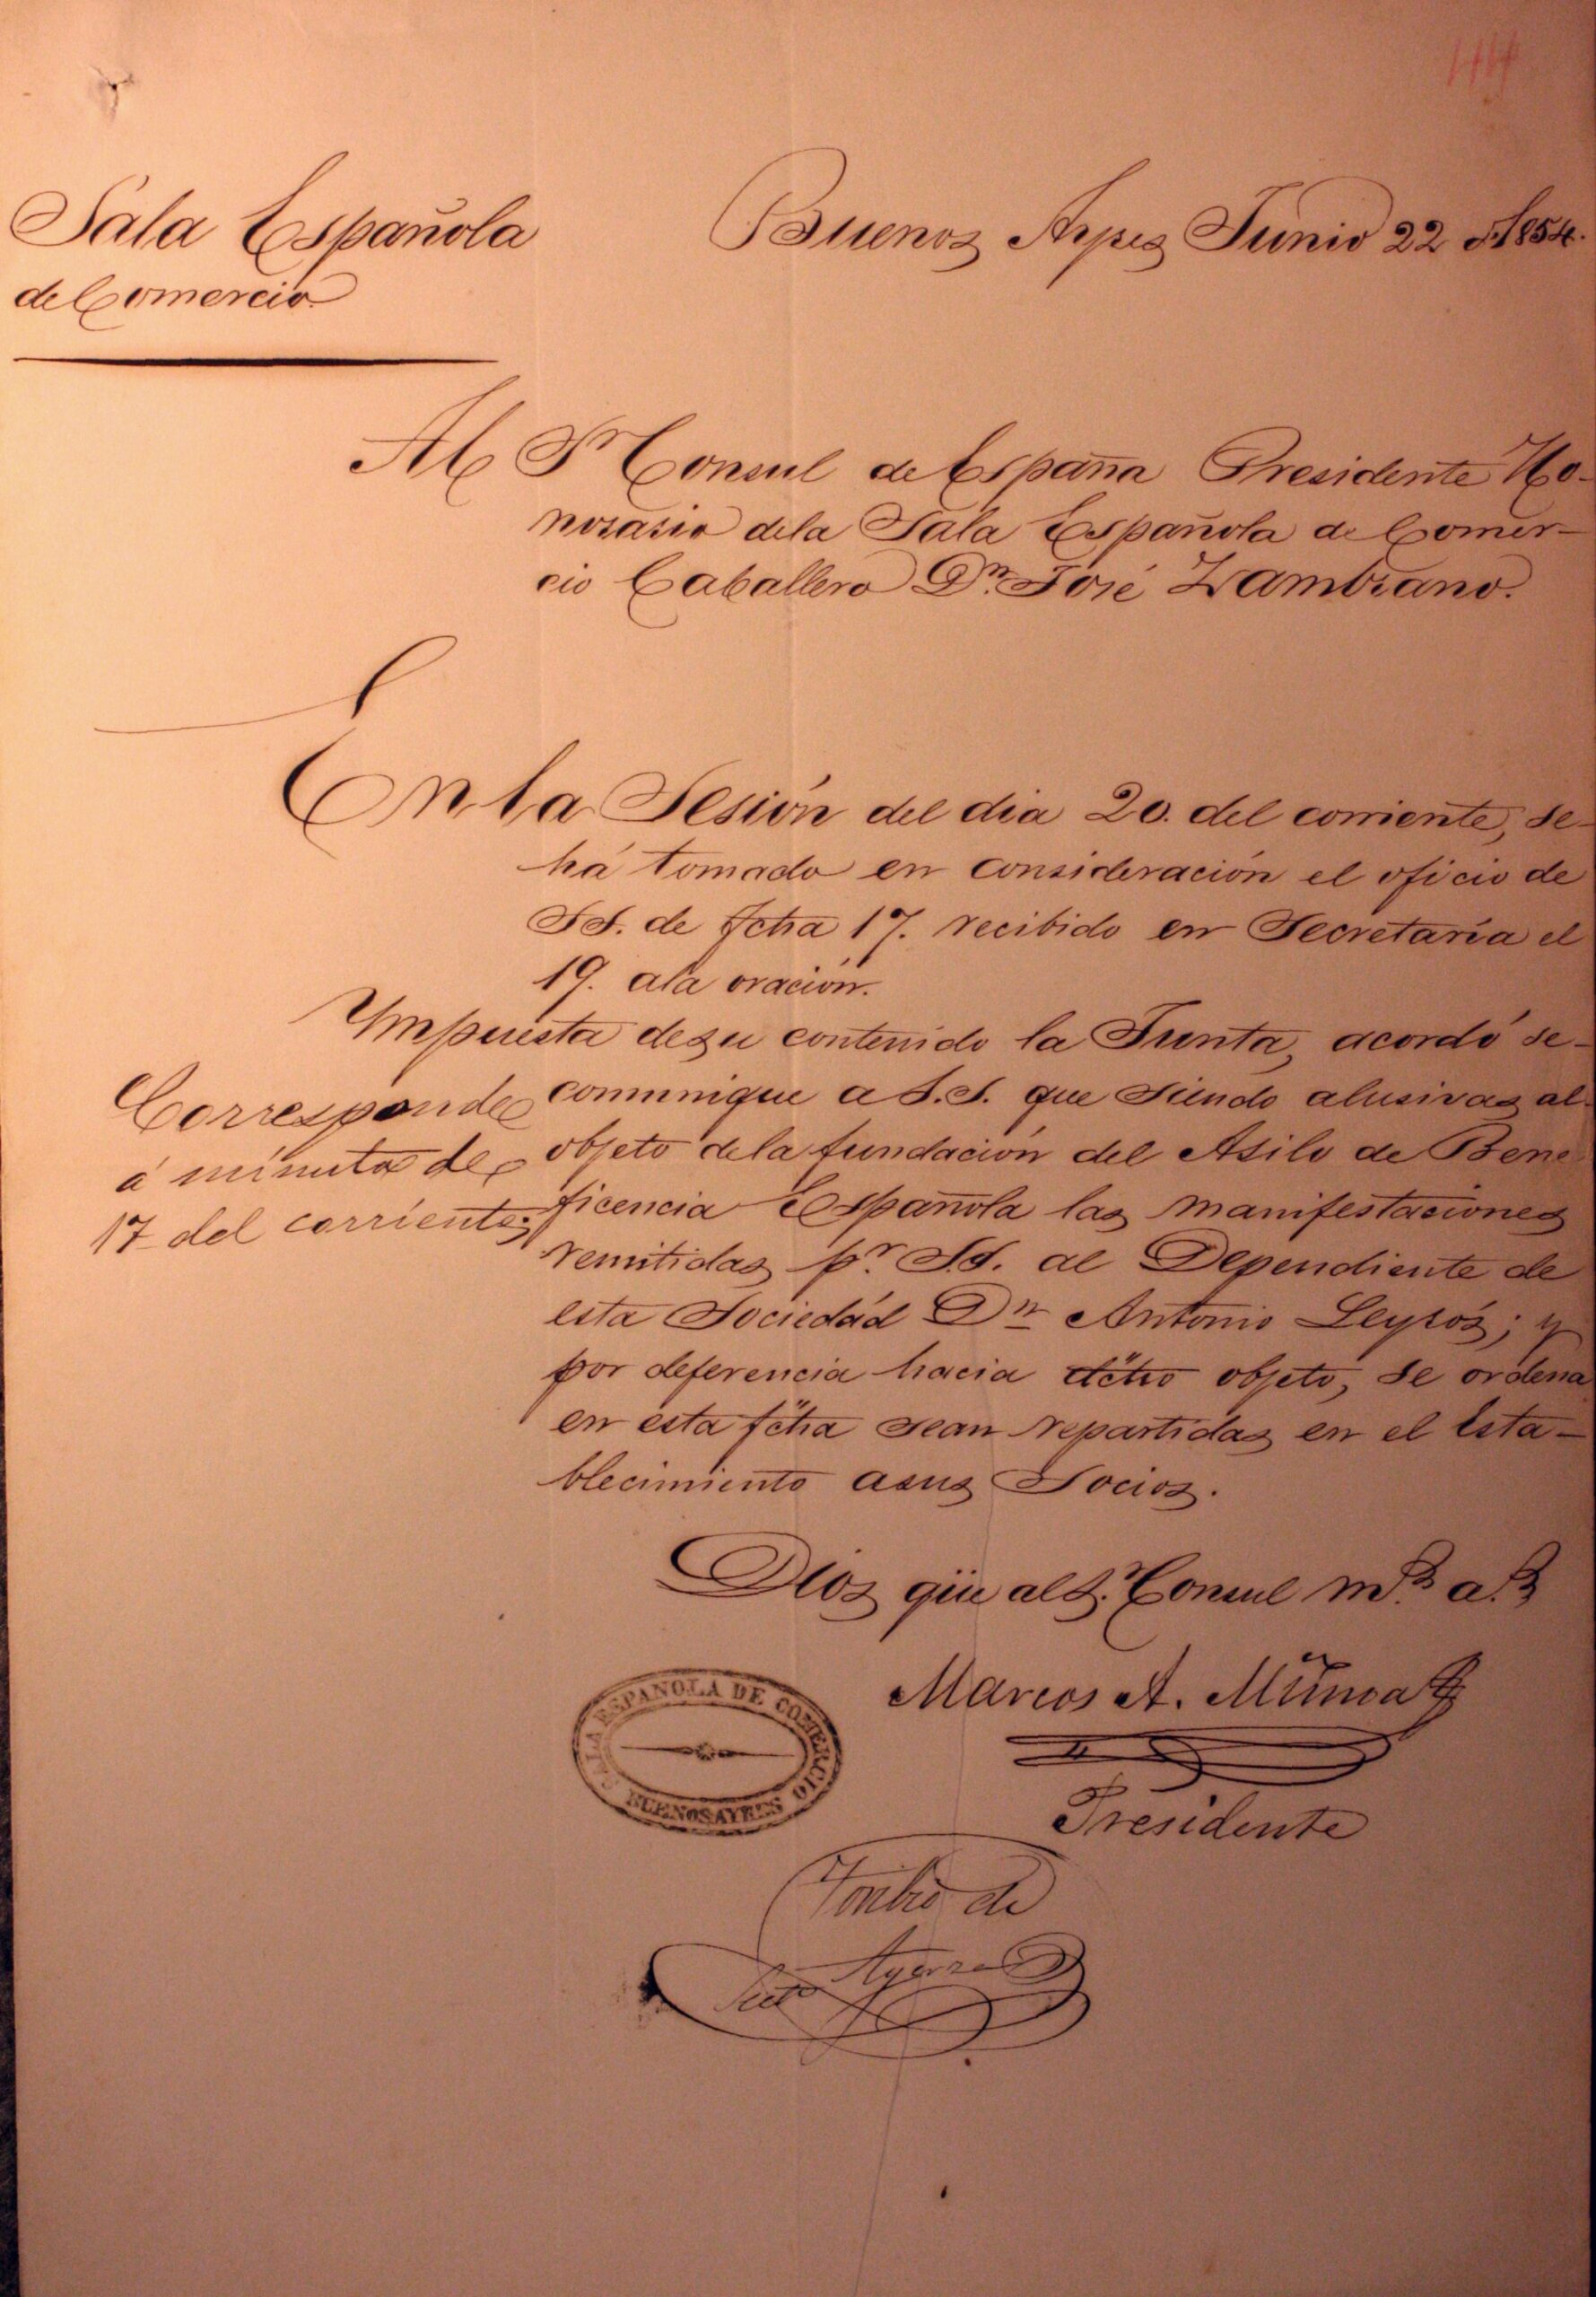 144
Sala Española
de Comercio
Buenos Ayres Junio 22 d 1854.
Al Sr Consul de España Presidente Ho-
norario dela Sala Española de Comer-
cio Caballero Dn. José Zambrano.
En la Sesión del dia 20. del corriente, se-
há tomado en consideración el oficio de
SS. de fcha 17. recibido en Secretaría el
19. ala oración.
Ympuesta desu contenido la Junta, acordó se-
comunique a S.S. que siendo alusivas al
objeto dela fundación del Asilo de Bene
ficencia Española las manifestaciones
remitidas pr. S.S. al Dependiente de
esta Sociedád Dn Antonio Leyrós; y
por deferencia hacia dicho objeto, se ordena
en esta fcha sean repartidas en el Esta-
blecimiento asus Socios.
Corresponde
á minuta de
17 del corriente.
Dios güe al S. Consul ms. as.
Marcos A. Muñoa
Presidente
SALA ESPAÑOLA DE COMERCIO
BUENOS AYRES
Toribio de
Ayerza
Secto